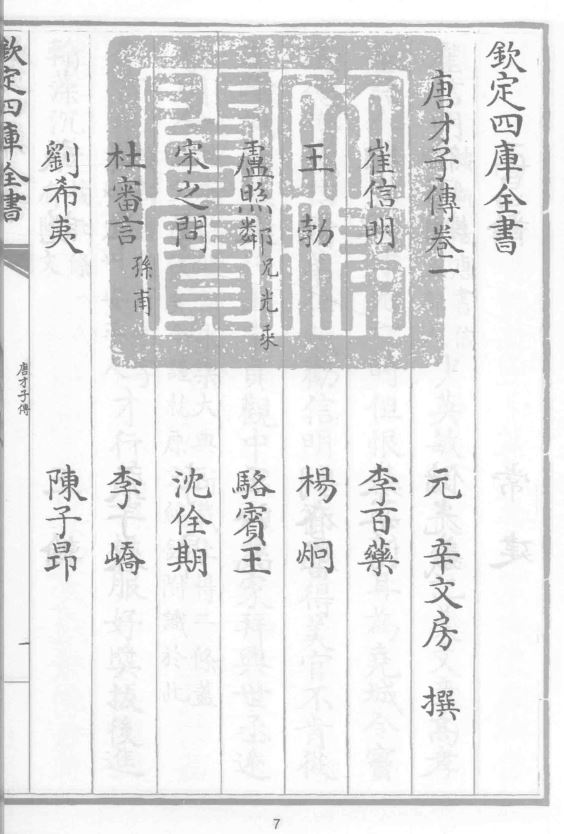 欽定四庫全書
唐才子傳卷一
元 辛文房 撰
崔信明 李百藥
王勃 楊炯
盧照鄰 兄光乘 駱賓王
宋之問 沈佺期
杜審言 孫甫 李嶠
劉希夷 陳子昻
文淵閣寶
欽定四庫全書
唐才子傳
一
7